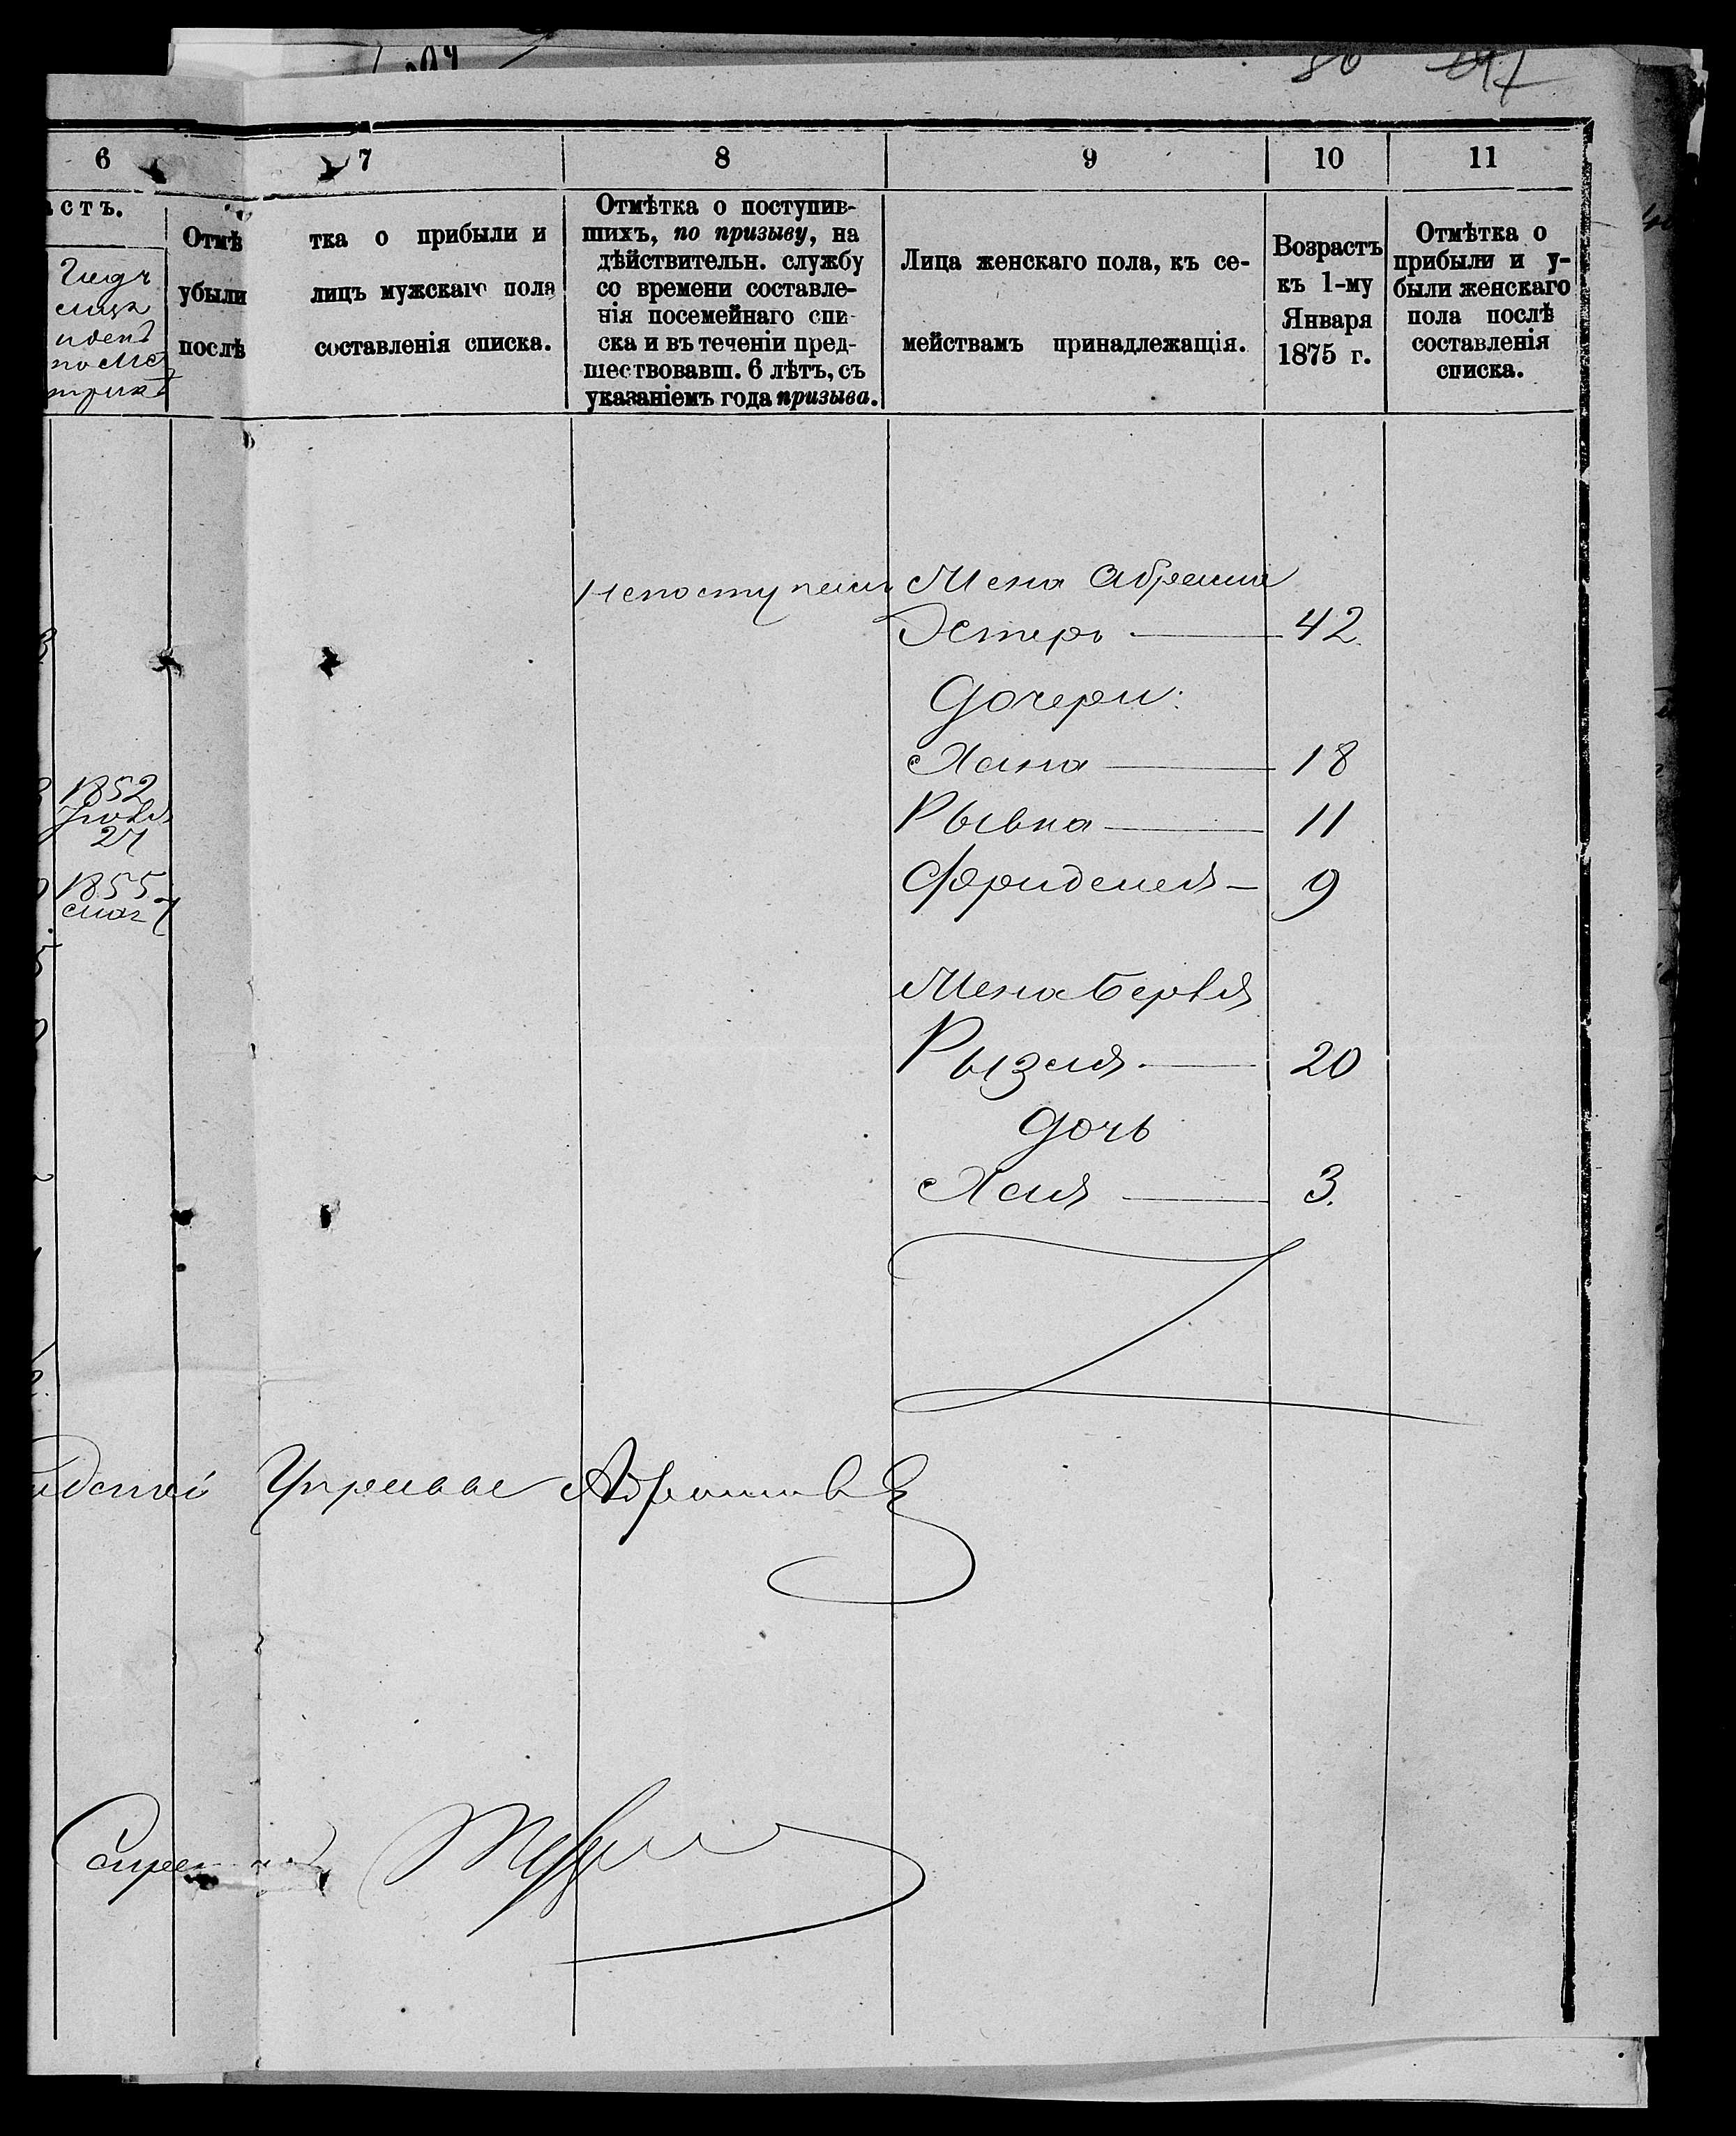 80
6 7 8 9 10 11
астъ.
Отмѣтка о прибыли и
убыли лицъ мужскаго пола
послѣ составленія списка.
Отмѣтка о поступив-
шихъ, по призыву, на
дѣйствительн. службу
со времени составле-
нія посемейнаго спи-
ска и въ теченіи пред-
шествовавш. 6 лѣтъ, съ
указаніемъ года призыва.
Лица женскаго пола, къ се-
мействамъ принадлежащія.
Возрастъ
къ 1-му
Января
1875 г.
Отмѣтка о
прибыли и у-
были женскаго
пола послѣ
составленія
списка.
Жена Абрама
Эстеръ 42
Дочери:
Хана 18
1852
27
Рывка 11
1855
7
9
Жена Берка
Рызля 20
дочь
Хая 3.